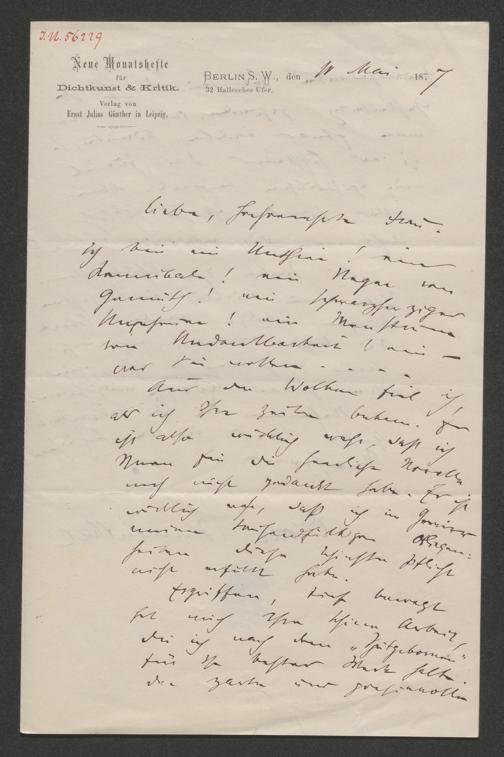 I.N. 56229
Neue Monatshefte
für
Dichtkunst & Kritik.
Verlag von
Ernst Julius Günther in Leipzig.
BERLIN S. W., den 11 Mai 1877
32 Hallesches Ufer.
Liebe, hochverehrte Frau.
Ich bin ein Unthier! ein
Kannibale! ein Neger von
Gemüth! ein schwarzherziger
ein Monstrum
von Undankbarkeit! ein –
was Sie wollen . . . .
Aus den Wolken fiel ich,
als ich Ihre Zeilen bekam. Es
ist also wirklich wahr, daß ich
Ihnen für die herrliche Novelle
noch nicht gedankt habe. Es ist
wirklich wahr, daß ich im
meiner tausendfältigen
diese Pflicht
nicht erfüllt habe.
Ergriffen, tief bewegt
hat mich Ihre schöne Arbeit,
die ich nach dem „Spätgeborenen“
für Ihr bestes Werk halte.
der zarte und